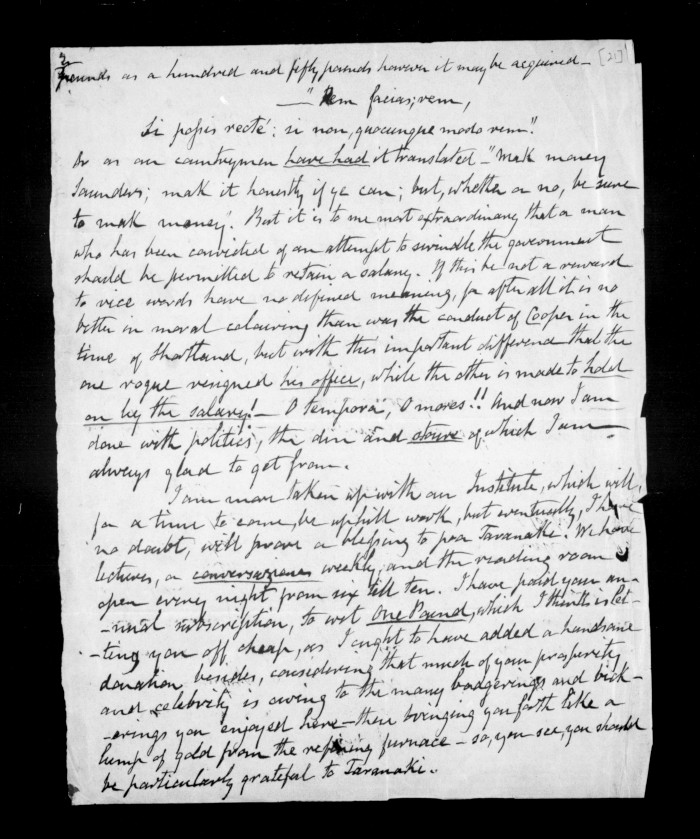 2
pounds as a hundred and fifty pounds however it may be acquired — [21]
— "Rem facias; rem,
Si possis recté; si non, quocunque modo rem".
Or as our countrymen have had it translated — "Mak money
Saunders; mak it honestly if ye can; but, whether or no, be sure
to mak money". But it is to me most extraordinary that a man
who has been convicted of an attempt to swindle the government
should be permitted to retain a salary. If this be not a reward
to vice words have no defined meaning, for after all it is no
better in moral colouring than was the conduct of Cooper in the
time of Shortland, but with this important difference that the
one rogue resigned his office, while the other is made to hold
on by the salary! — O tempora, O mores!! And now I am
done with politics, the din and stoure of which I am
always glad to get from.
I am more taken up with our Institute, which will,
for a time to come, be uphill work, but eventually, I have
no doubt, will prove a blessing to poor Taranaki. We have
lectures, or conversaziones weekly, and the reading room
open every night from six till ten. I have paid your an-
-nual subscription, to wit One Pound, which I think is let-
-ting you off cheap, as I ought to have added a handsome
donation besides, considering that much of your prosperity
and celebrity is owing to the many badgerings and bick-
-erings you enjoyed here — then bringing you forth like a
lump of gold from the refining furnace — so, you see, you should
be particularly grateful to Taranaki.